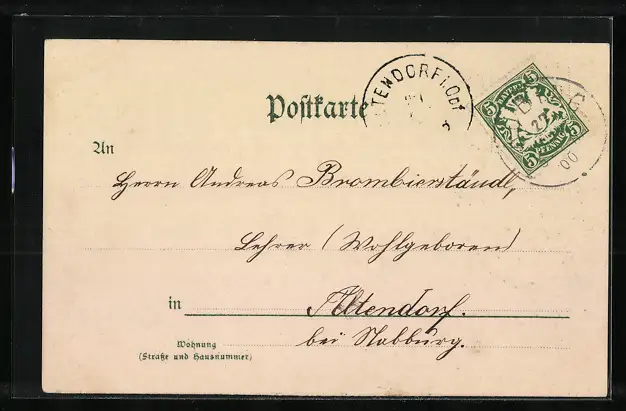 ALTENDORF i. Opf
Postkarte
BAYERN
5 5
5 5
PFENNIG
27
00
An
Herrn Andreas Brombierstäudl,
Lehrer (Wohlgeboren)
in Altendorf.
bei Nabburg.
Wohnung
(Straße und Hausnummer)